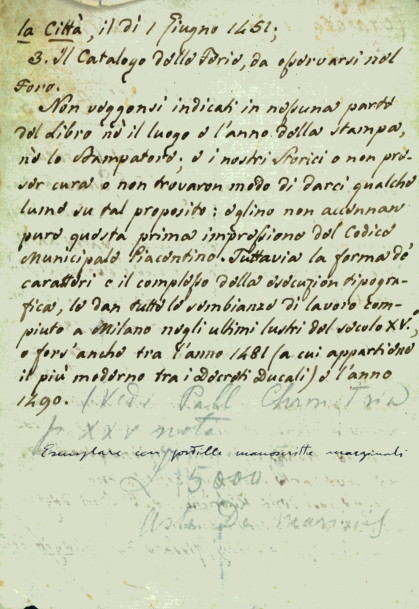 la Città, il dì 1 Giugno 1451;
3. Il Catalogo delle Ferie, da osservarsi nel
Foro.
Non veggonsi indicati in nessuna parte
del Libro nè il luogo e l'anno della stampa,
nè lo Stampatore; e i nostri Storici o non pre-
ser cura o non trovaron modo di darci qualche
lume su tal proposito: eglino non accennan
pure questa prima impressione del Codice
Municipale Piacentino. Tuttavia la forma de'
caratteri e il complesso della esecuzion tipogra-
fica, le dan tutte le sembianze di lavoro com-
piuto a Milano negli ultimi lustri del secolo XV.°,
e fors'anche tra l'anno 1481 (a cui appartiene
il più moderno tra i Decreti Ducali) e l'anno
1490.
XXV nota
Esemplare con postille manoscritte marginali
5000